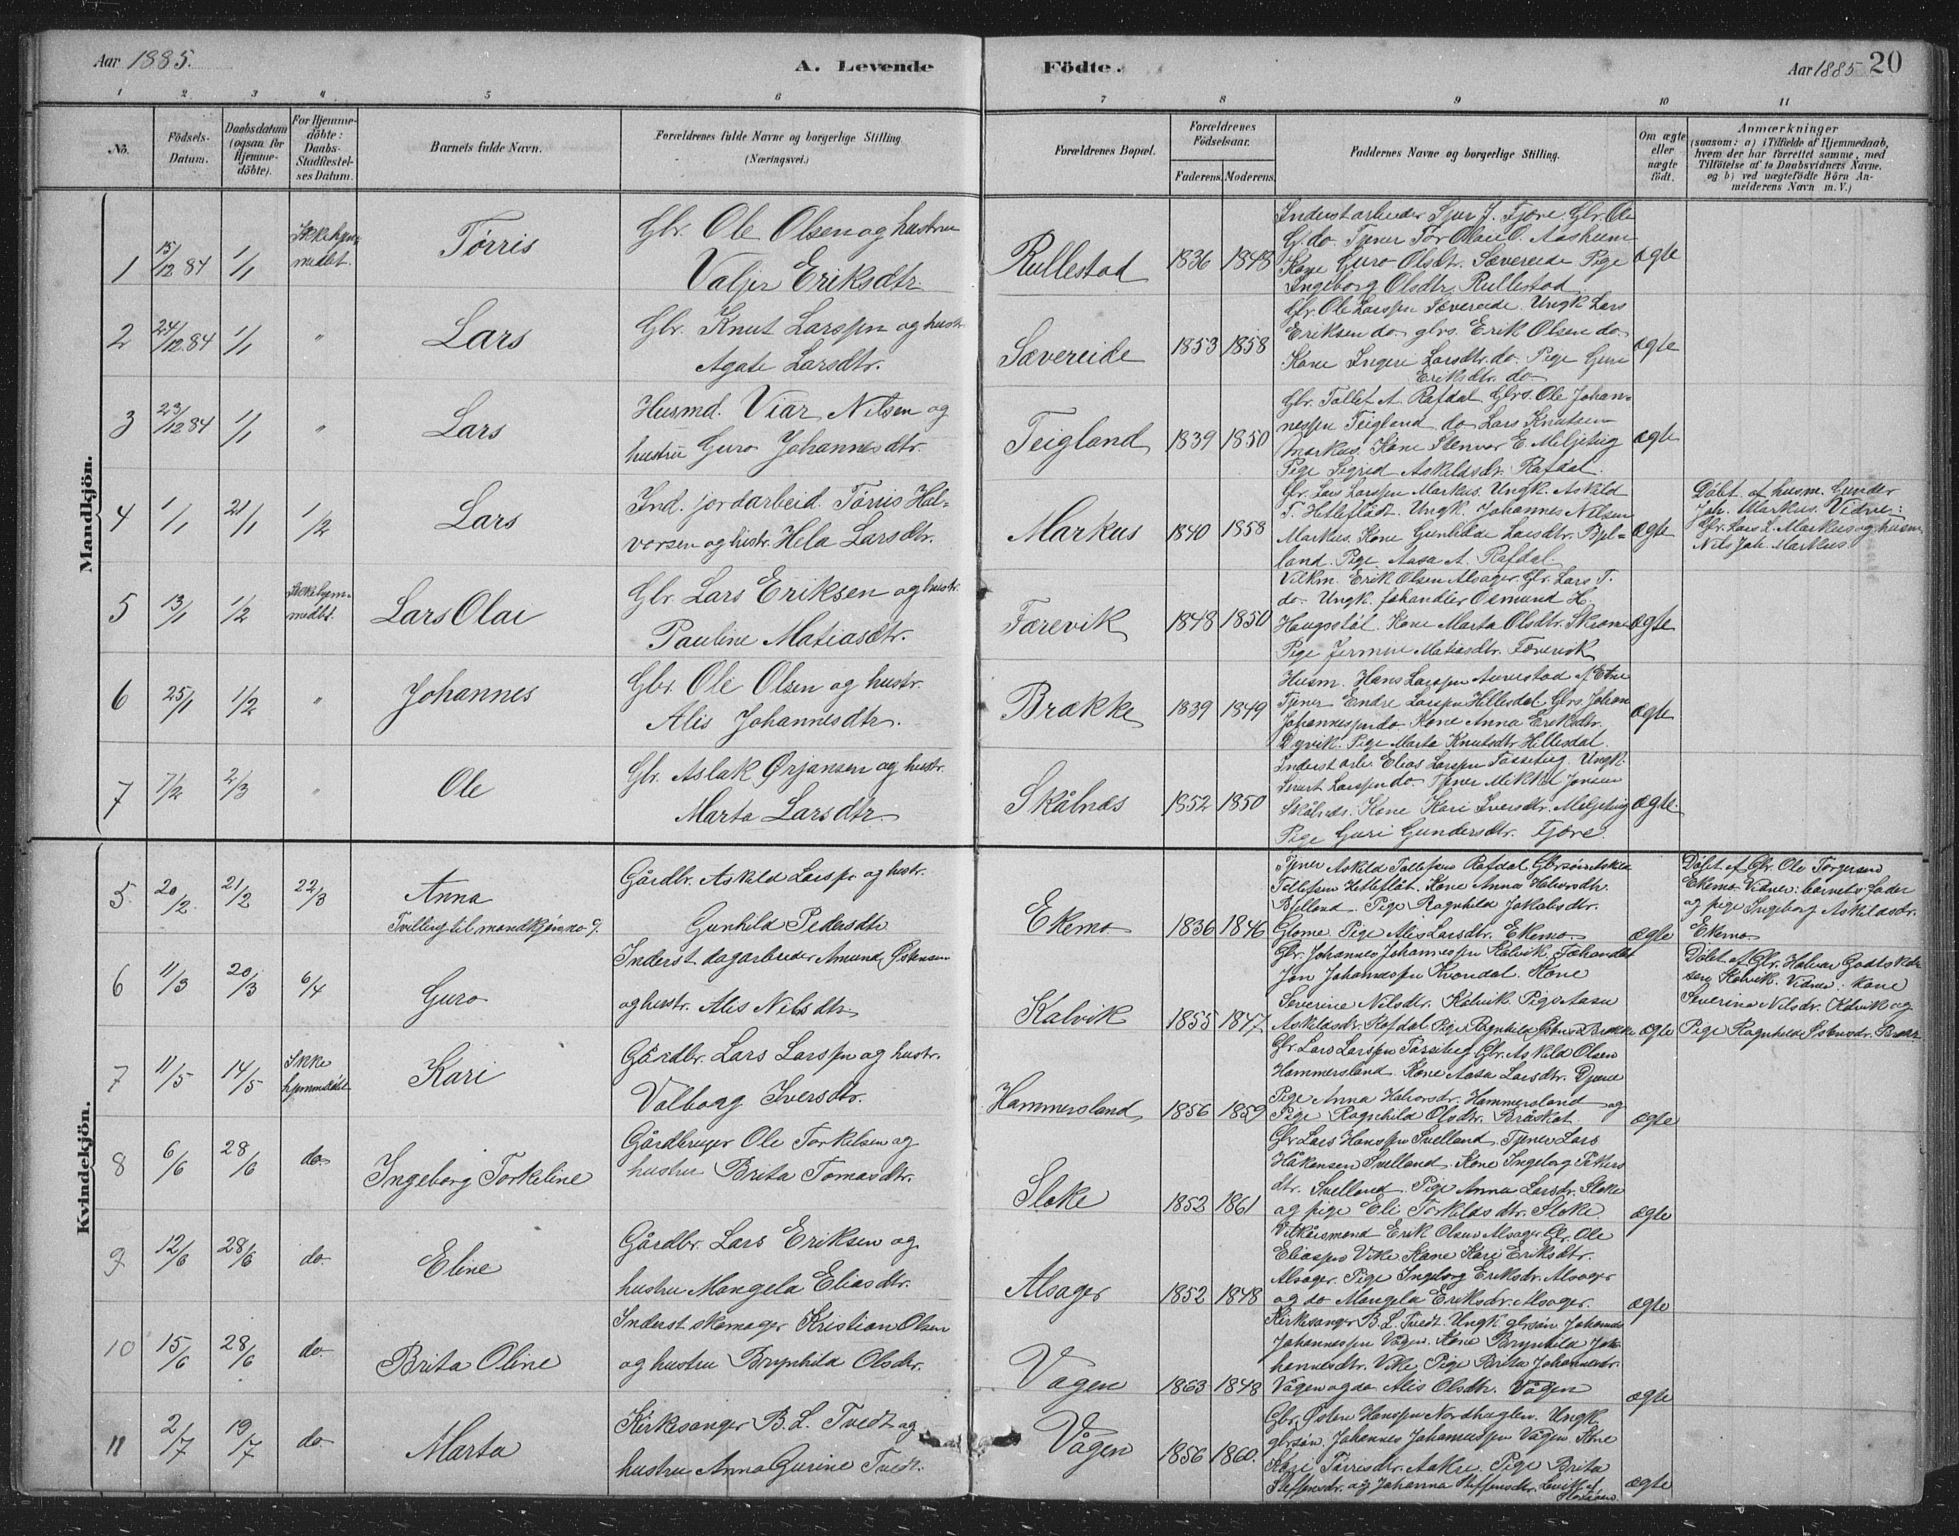 Aar 1885.
A. Levende
Födte.
Aar 1885
20
1 2 3 4 5 6 7 8 9 10 11
No.
Födsels-
Datum.
Daabsdatum
(ogsaa for
Hjemme-
döbte).
For Hjemme-
döbte:
Daabs-
Stadfæstel-
ses Datum.
Barnets fulde Navn.
Forældrenes fulde Navne og borgerlige Stilling
(Næringsvei.)
Forældrenes Bopæl.
Forældrenes
Födselsaar.
Faderens. Moderens.
Faddernes Navne og borgerlige Stilling.
Om ægte
eller
uægte
födt.
Anmærkninger
(saasom: a) i Tilfælde af Hjemmedaab,
hvem der har forrettet samme, med
Tilföielse af to Daabsvidners Navne.
og b) ved uægtefödte Börn An-
melderens Navn m. V.)
Mandkjön.
1 15/12 84 1/1 Ikke hjem-
medbt. Tørris
Gbr. Ole Olsen og hustru
Valjer Eriksdtr.
Rullestad 1836 1848
Inderst arbeider Sjur J. Fjøre. Gbr. Ole
G. do. Tjener Tor Olai O. Aaskum
Kone Guro Olsdtr. Sævereide Pige
Ingeborg Olsdtr. Rullestad
ægte
2 24/12 84 1/1 " Lars
Gbr. Knut Larssen og hustr.
Agate Larsdtr.
Sævereide 1853 1858
Gbr. Ole Larssen Sævereide. Ungk. Lars
Eriksen do gbrs. Erik Olsen do.
Kone Ingeri Larsdtr. do. Pige Guri
Eriksdtr. do
ægte
3 23/12 84 1/1 " Lars
Husmd. Viar Nilsen og
hustru Guro Johannesdtr.
Teigland 1839 1850
Gbr. Tollet A. Rafdal Gbrs. Ole Johan-
nessen Teigland do Lars Knutsen
Markus. Kone Stenvor E. Miljeteig
Pige Sigrid Askildsdtr. Rafdal.
ægte
4 1/1 21/1 1/2 Lars
Ind. jordarbeid. Tørris Hal-
vorsen og hustr. Hela Larsdtr.
Markus 1840 1858
Gbr. Lars Larssen Markus. Ungk. Askild
T. Hetlefløt. Ungk. Johannes Nilsen
Markus. Kone Gunhilde Larsdtr. Bjel-
land. Pige Aasa A. Rafdal
ægte
Döbt af husm. Gunder
Joh. Markus. Vidne:
Gbr. Lars L. Markus og husm.
Nils Joh. Markus.
5 13/1 1/2 Ikke hjem-
medbt. Lars Olai
Gbr. Lars Eriksen og hustr.
Pauline Matiasdtr.
Færevik 1848 1850
Vilkm. Erik Olsen Alsager. Gbr. Lars T.
do. Ungk. fehandler Osmund H.
Haugsstøl. Kone Marta Olsdtr. Skromme
Pige Jermine Matiasdtr. Færevik
ægte
6 25/1 1/2 " Johannes
Gbr. Ole Olsen og hustr.
Alis Johannesdtr.
Brække 1839 1849
Husm. Hans Larssen Aurestad af Etne
Tjener Endre Larssen Hillesdal Gbrs. Johan
Johannessen do. Kone Anna Eriksdtr.
Dyvik. Pige Marta Knutsdtr. Hillesdal.
ægte
7 7/2 2/3 " Ole
Gbr. Aslak Ørjansen og hustr.
Marta Larsdtr.
Skålnæs 1852 1850
Inderst arb. Elias Larssen Tassiteig. Ungk.
Knut Larssen do. Tjener Mikkel Jonsen
Skålnæs. Kone Kari Iversdtr. Miljeteig
Pige Guri Gundersdtr. Fjøre.
ægte.
Kvindekjön.
5 20/2 21/2 22/3 Anna
Tvilling til mandkjön no 9.
Gårdbr. Askild Larssen og hustr.
Gunhild Pedersdtr
Ekemo 1836 1846
Tjener Askild Tollefsen Rafdal Gbrsøn Askild
Tollefsen Hetlefløt. Kone Anna Halvorsdtr.
Bjelland. Pige Ragnhild Jakobsdtr.
Glome. Pige Alis Larsdtr. Ekemo
ægte
Döbt af Gbr. Ole Torgersen
Ekemo. Vidner: barnets fader
og pige Ingeborg Askildsdtr.
Ekemo
6 11/3 20/3 6/4 Guro
Inderst dagarbeider Amund Østensen
og hustr. Alis Nilsdtr.
Kalvik 1855 1847
Gbr. Johannes Johannessen Kalvik. Fæhandler
Jon Johannessen Krondal. Kone
Severine Nilsdtr. Kalvik Pige Aasa
Askildsdtr. Rafdal Pige Ragnhild Østensdtr Brække
ægte
Döbt af Gbr. Halvor Godtskalk-
sen Kalvik. Vidner: kone
Severina Nilsdtr. Kalvik og
Pige Ragnhilda Østensdtr. Brække
7 11/5 14/5 Ikke
hjemmedöbt Kari
Gårdbr. Lars Larssen og hustr.
Valborg Iversdtr.
Hammersland 1856 1859
Gbr. Lars Larssen Tassiteig Gbr. Askild Olsen
Hammersland. Kone Aasa Larsdtr. Djøne
Pige Anna Halvorsdtr. Hammersland og
Pige Ragnhild Olsdtr. Bråskot
ægte
8 6/6 28/6 do Ingeborg Torkeline
Gårdbruger Ole Torkelsen og
hustru Brita Tomasdtr.
Sloke 1852 1861
Gbr. Lars Hanssen Svelland. Tjener Lars
Håkensen Svelland. Kone Ingeborg Peters
dtr. Svelland. Pige Anna Larsdr. Sloke
og pige Eli Torkildsdtr. Sloke.
ægte
9 12/6 28/6 do. Eline
Gårdbr. Lars Eriksen og
hustru Mangela Eliasdtr.
Alsager 1852 1848
Vilkårsmand Erik Olsen Alsager Gbr. Ole
Eliassen Vike Kone Kari Eriksdtr.
Alsager. Pige Ingeborg Eriksdr. Alsager
og do Mangela Eriksdtr. Alsager.
ægte
10 15/6 28/6 do Brita Oline
Inderst skomager Kristian Olsen
og hustru Brynhilda Olsdtr.
Vågen 1863 1848
Kirkesanger B. L. Tvedt. Ungk. gbrsøn Johannes
Johannessen Vågen. Kone Brynhild Jo-
hannesdtr. Vike Pige Brita Johannesdtr.
Vågen og do Alis Olsdtr. Vågen
ægte
11 2/7 19/7 do Marta
Kirkesanger B. L. Tvedt og
hustru Anna Gurine Tvedt.
Vågen 1856 1860.
Gbr. Østen Hanssen Nordhuglen. Ungk.
gbrsøn. Johannes Johannessen Vågen Kone
Kari Tørresdtr. Aakre. Pige Brita
Steffensdtr. og Johanna Steffensdtr.
ægte